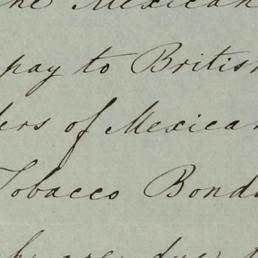 the Mexican
pay to British
ers of Mexican
Tobacco Bonds
are due